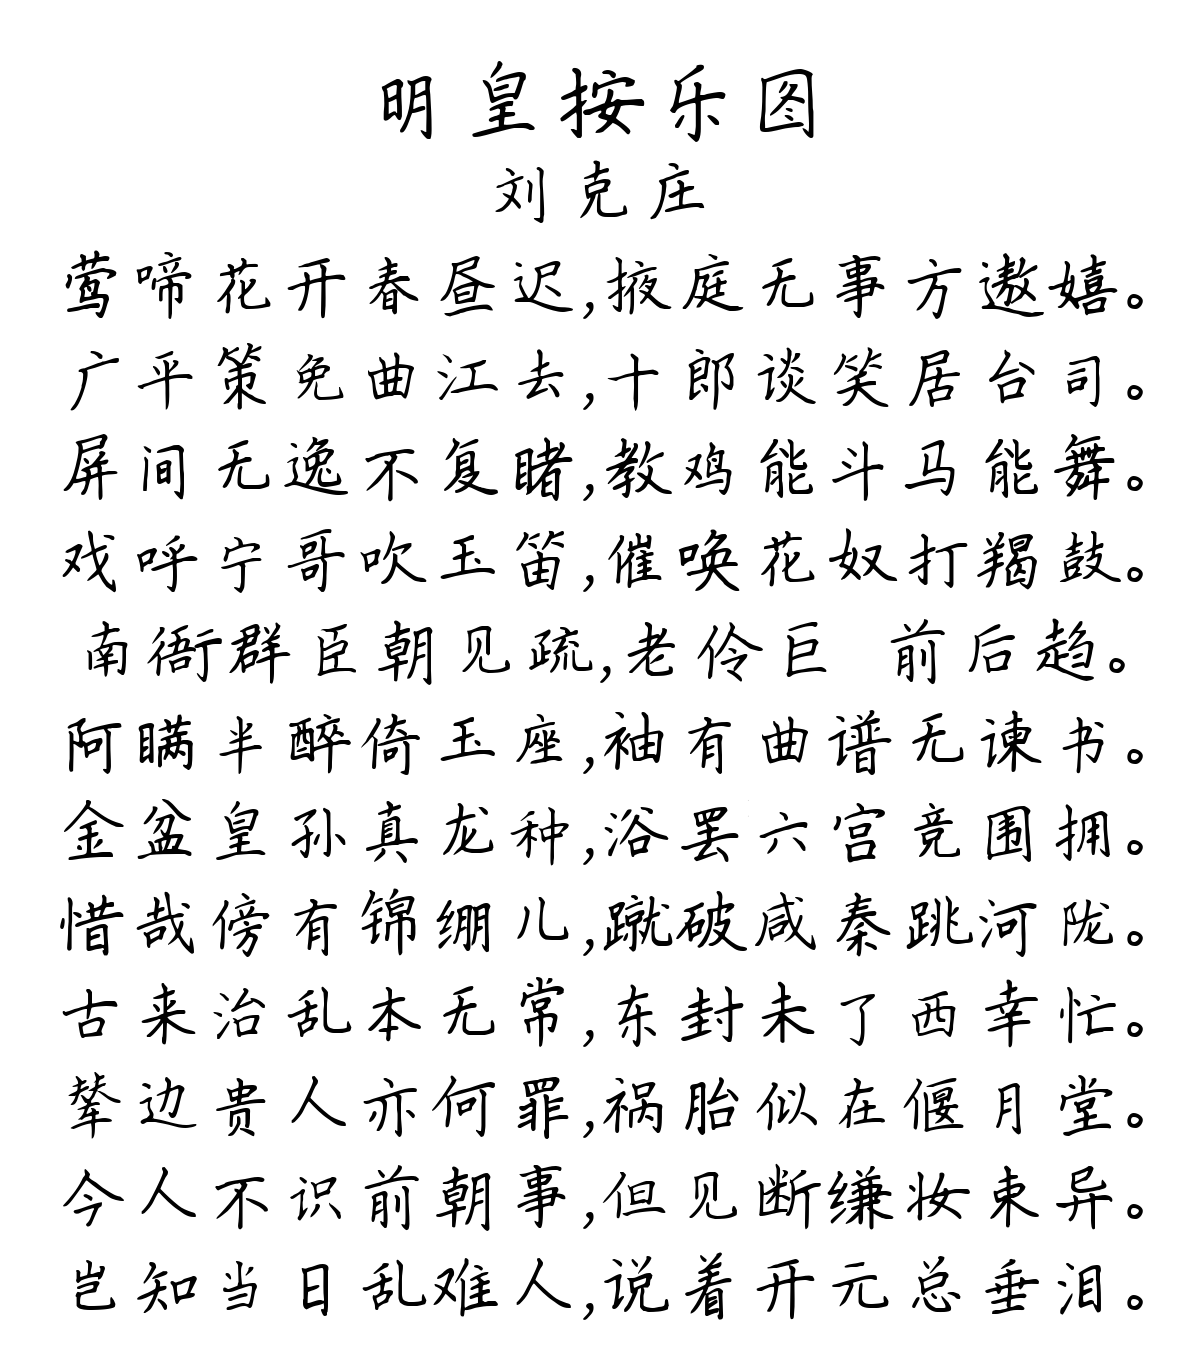 明皇按乐图
刘克庄
莺啼花开春昼迟,掖庭无事方遨嬉。
广平策免曲江去,十郎谈笑居台司。
屏间无逸不复睹,教鸡能斗马能舞。
戏呼宁哥吹玉笛,催唤花奴打羯鼓。
南衙群臣朝见疏,老伶巨 前后趋。
阿瞒半醉倚玉座,袖有曲谱无谏书。
金盆皇孙真龙种,浴罢六宫竞围拥。
惜哉傍有锦绷儿,蹴破咸秦跳河陇。
古来治乱本无常,东封未了西幸忙。
辇边贵人亦何罪,祸胎似在偃月堂。
今人不识前朝事,但见断缣妆束异。
岂知当日乱难人,说着开元总垂泪。